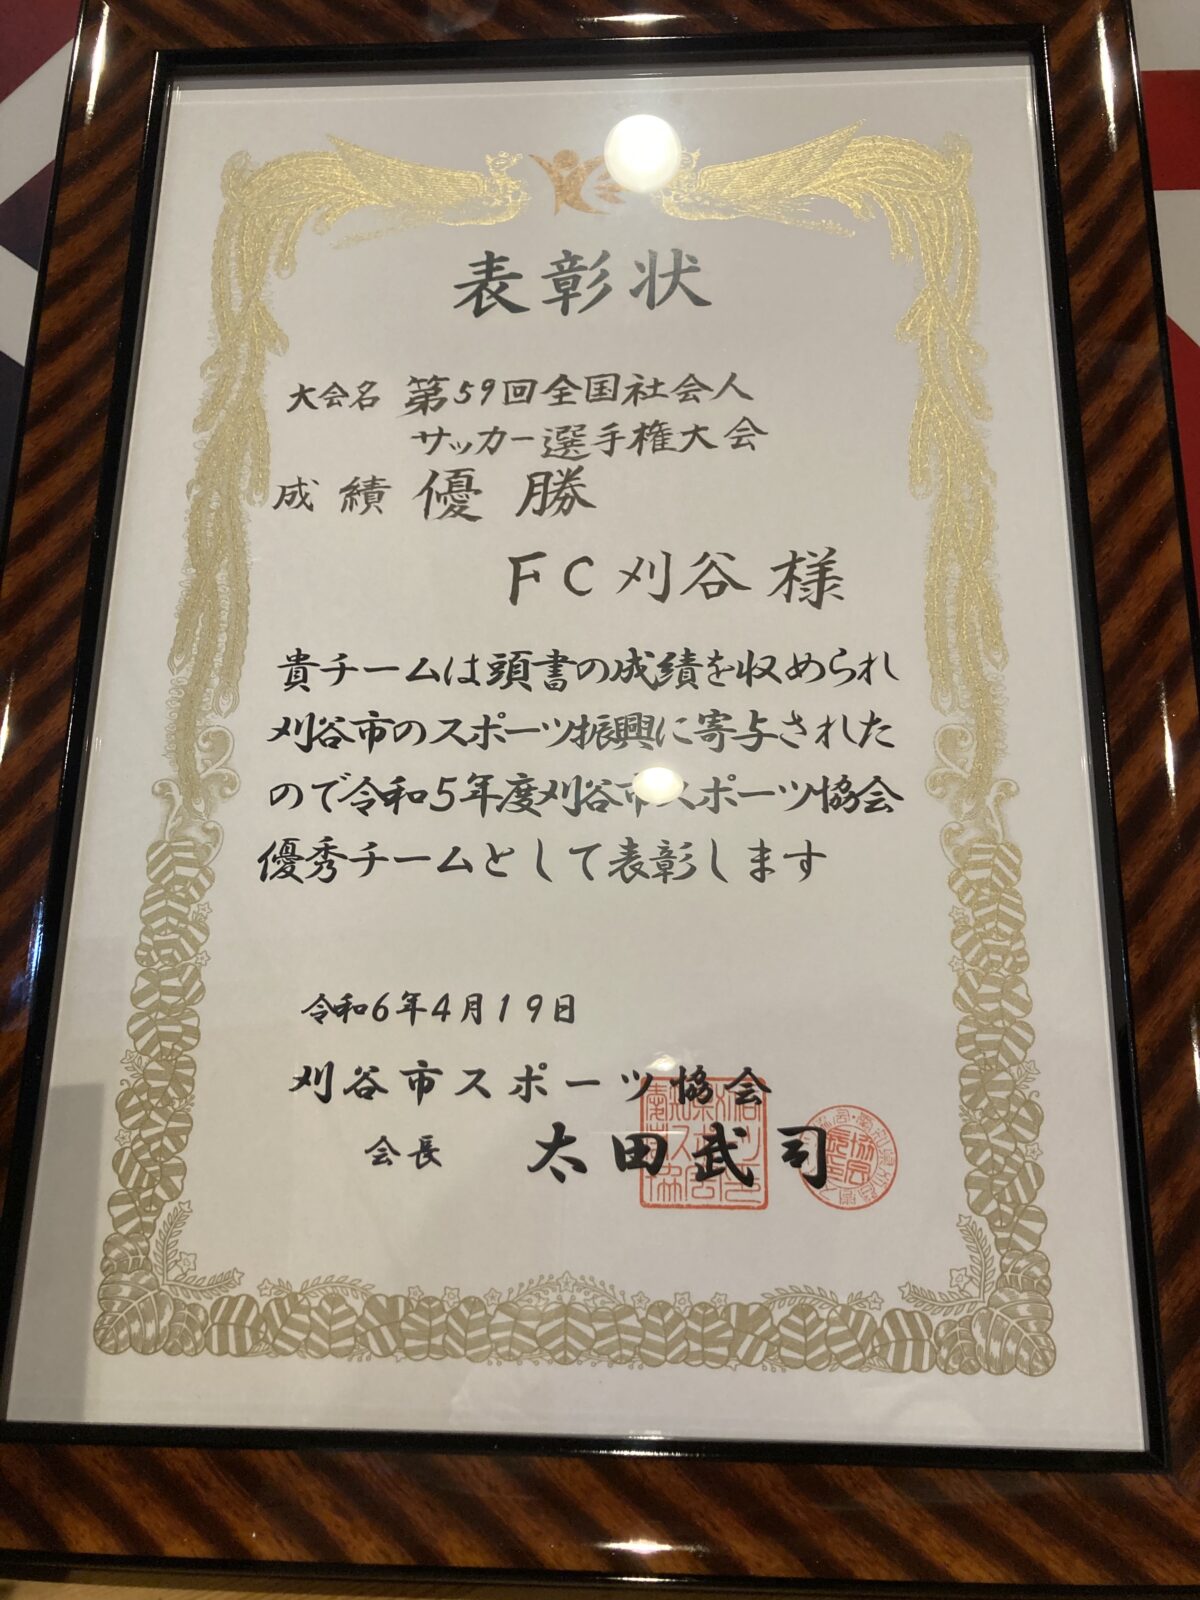 表彰状
大会名 第59回全国社会人
サッカー選手権大会
成績 優勝
FC刈谷 様
貴チームは頭書の成績を収められ
刈谷市のスポーツ振興に寄与された
ので令和5年度刈谷市スポーツ協会
優秀チームとして表彰します
令和6年4月19日
刈谷市スポーツ協会
会長 太田武司